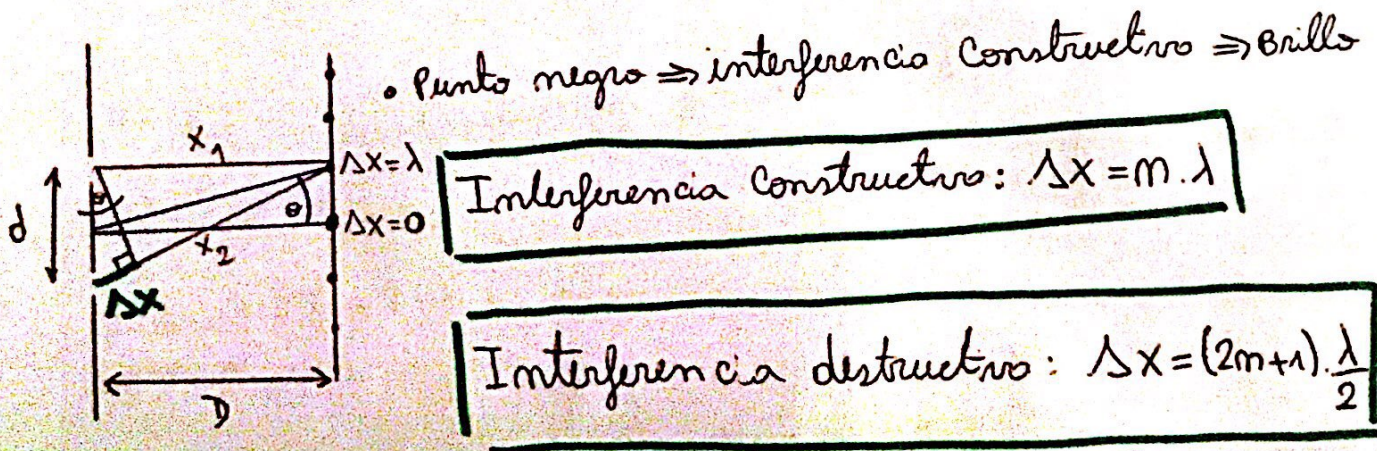 • Punto negro ⇒ interferencia Constructivo ⇒ Brillo
x₁
ΔX=λ
Interferencia Constructivo: ΔX = m.λ
d
θ
θ
ΔX=0
x₂
ΔX
Interferencia destructivo: ΔX = (2m+1).λ/2
D